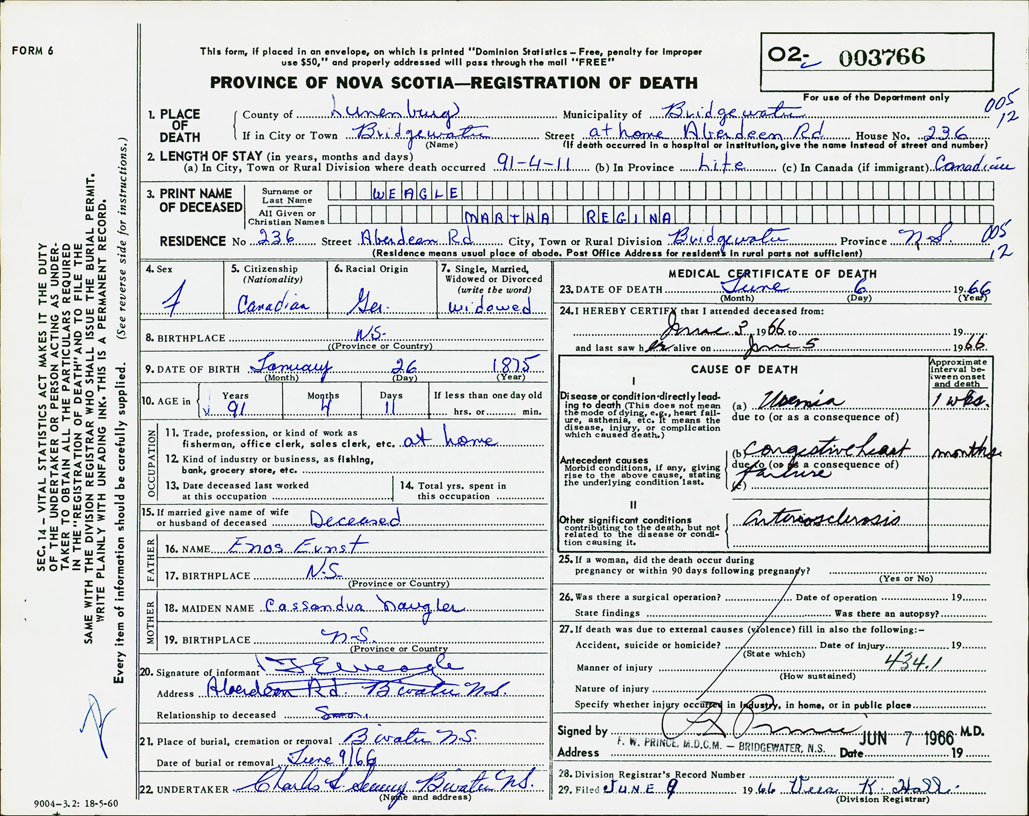 FORM 6
This form, if placed in an envelope, on which is printed "Dominion Statistics – Free, penalty for improper
use $50," and properly addressed will pass through the mail "FREE"
O2- 003766
PROVINCE OF NOVA SCOTIA—REGISTRATION OF DEATH
For use of the Department only
1. PLACE OF DEATH County of Lunenburg Municipality of Bridgewater 005 12
If in City or Town Bridgewater Street at home Aberdeen Rd House No. 236
(Name) (If death occurred in a hospital or institution, give the name instead of street and number)
2. LENGTH OF STAY (in years, months and days)
(a) In City, Town or Rural Division where death occurred 91-4-11 (b) In Province Life (c) In Canada (if immigrant) Canadian
3. PRINT NAME OF DECEASED Surname or Last Name WEAGLE
All Given or Christian Names MARTHA REGINA
RESIDENCE No 236 Street Aberdeen Rd City, Town or Rural Division Bridgewater Province N.S. 005 12
(Residence means usual place of abode. Post Office Address for residents in rural parts not sufficient)
4. Sex f
5. Citizenship (Nationality) Canadian
6. Racial Origin Ger.
7. Single, Married, Widowed or Divorced (write the word) Widowed
8. BIRTHPLACE N.S.
(Province or Country)
9. DATE OF BIRTH January 26 1875
(Month) (Day) (Year)
10. AGE in Years 91 Months 4 Days 11 If less than one day old hrs. or min.
OCCUPATION
11. Trade, profession, or kind of work as
fisherman, office clerk, sales clerk, etc. at home
12. Kind of industry or business, as fishing,
bank, grocery store, etc.
13. Date deceased last worked
at this occupation
14. Total yrs. spent in
this occupation
15. If married give name of wife
or husband of deceased Deceased
FATHER
16. NAME Enos Ernst
17. BIRTHPLACE N.S.
(Province or Country)
MOTHER
18. MAIDEN NAME Cassandra Naugler
19. BIRTHPLACE N.S.
(Province or Country
20. Signature of informant
Address Aberdeen Rd. B'water N.S.
Relationship to deceased Son
21. Place of burial, cremation or removal B'water N.S.
Date of burial or removal June 9/66
22. UNDERTAKER Charles B'water N.S.
(Name and address)
MEDICAL CERTIFICATE OF DEATH
23. DATE OF DEATH June 6 1966
(Month) (Day) (Year)
24. I HEREBY CERTIFY that I attended deceased from:
June 3 1966 to 19
and last saw her alive on June 5 1966
CAUSE OF DEATH
Approximate interval between onset and death
I
Disease or condition directly leading to death (This does not mean the mode of dying, e.g., heart failure, asthenia, etc. It means the disease, injury, or complication which caused death.)
(a) Uremia 1 wks.
due to (or as a consequence of)
Antecedent causes
Morbid conditions, if any, giving rise to the above cause, stating the underlying condition last.
(b) Congestive heart months
due to (or as a consequence of)
failure
(c)
II
Other significant conditions contributing to the death, but not related to the disease or condition causing it.
Arteriosclerosis
25. If a woman, did the death occur during
pregnancy or within 90 days following pregnancy?
(Yes or No)
26. Was there a surgical operation? Date of operation 19
State findings Was there an autopsy?
27. If death was due to external causes (violence) fill in also the following:–
Accident, suicide or homicide? Date of injury 19
(State which)
434.1
Manner of injury
(How sustained)
Nature of injury
Specify whether injury occurred in Industry, in home, or in public place
Signed by F W Prince M.D.
JUN 7 1966
F. W. PRINCE, M.D.C.M. – BRIDGEWATER, N.S.
Address Date 19
28. Division Registrar's Record Number
29. Filed JUNE 9 1966 Vera K. Hall
(Division Registrar)
SEC. 14 – VITAL STATISTICS ACT MAKES IT THE DUTY
OF THE UNDERTAKER OR PERSON ACTING AS UNDERTAKER
TO OBTAIN ALL THE PARTICULARS REQUIRED
IN THE "REGISTRATION OF DEATH" AND TO FILE THE
SAME WITH THE DIVISION REGISTRAR WHO SHALL ISSUE THE BURIAL PERMIT.
WRITE PLAINLY WITH UNFADING INK. THIS IS A PERMANENT RECORD.
Every item of information should be carefully supplied. (See reverse side for instructions.)
9004–3.2: 18-5-60